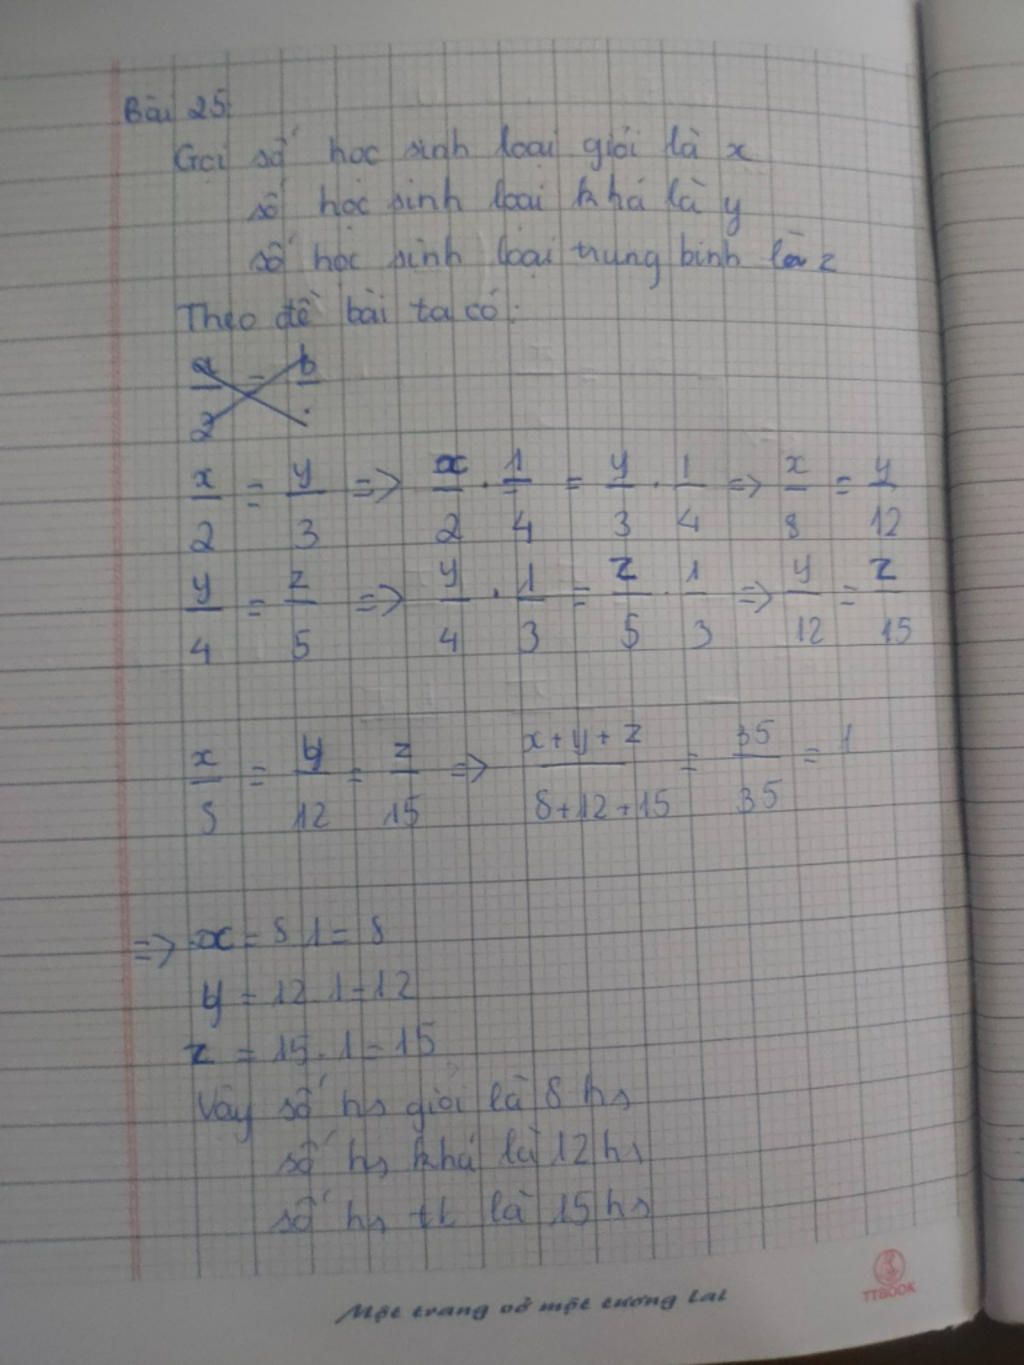 Bài 25:
Gọi số học sinh loại giỏi là x
số học sinh loại khá là y
số học sinh loại trung bình là z
Theo đề bài ta có:
x/2 = y/3 => x/2 . 1/4 = y/3 . 1/4 => x/8 = y/12
y/4 = z/5 => y/4 . 1/3 = z/5 . 1/3 => y/12 = z/15
x/8 = y/12 = z/15 => x+y+z / 8+12+15 = 35/35 = 1
=> x = 8.1 = 8
y = 12.1 = 12
z = 15.1 = 15
Vậy số hs giỏi là 8 hs
số hs khá là 12 hs
số hs tb là 15 hs
Một trang vở một tương lai
TTBOOK